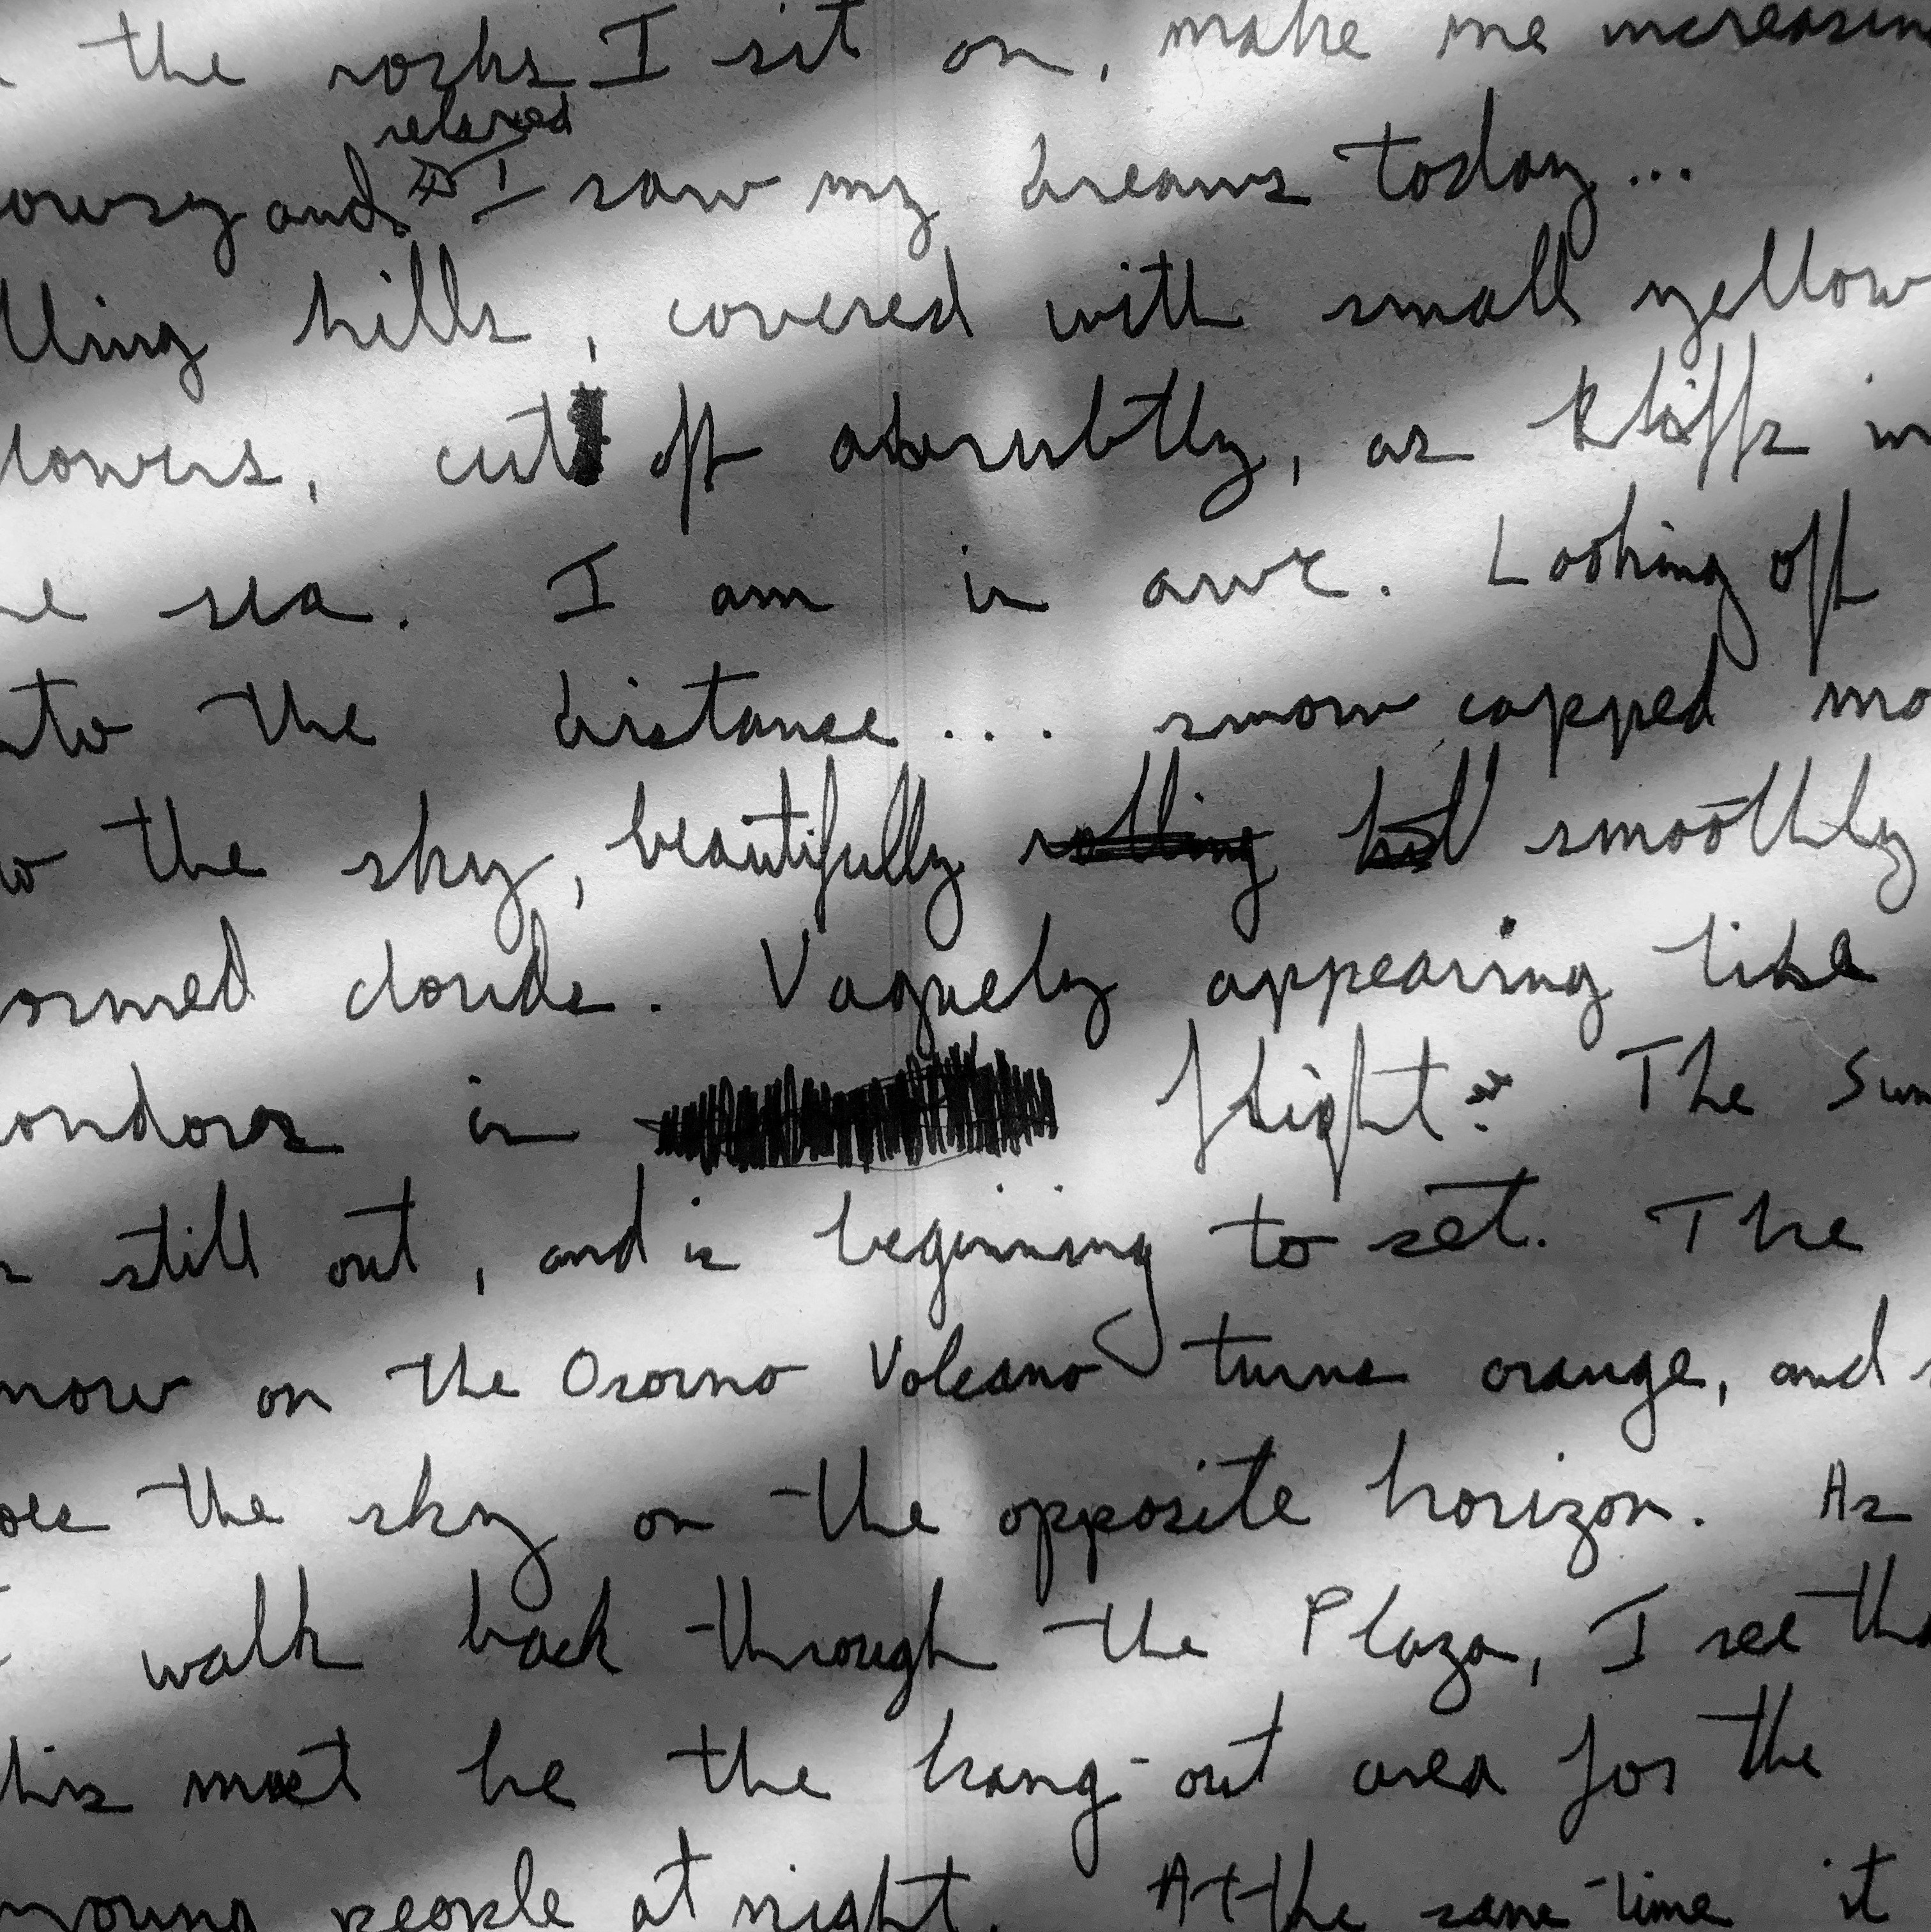 the rocks I sit on, make me increasin
relaxed
owsy and I saw my dreams today...
lling hills, covered with small yellow
lowers, cut off abrubtly, as kliffs in
e sea. I am in awe. Looking off
nto the distance... snow capped mo
to the sky, beautifully rolling smoothly
ormed clouds. Vaguely appearing like
ondors in flight. The Sun
s still out, and is beginning to set. The
now on the Osorno Volcano turns orange, and
oes the sky on the opposite horizon. As
I walk back through the Plaza, I see tha
his must be the hang-out area for the
young people at night. At the same time it